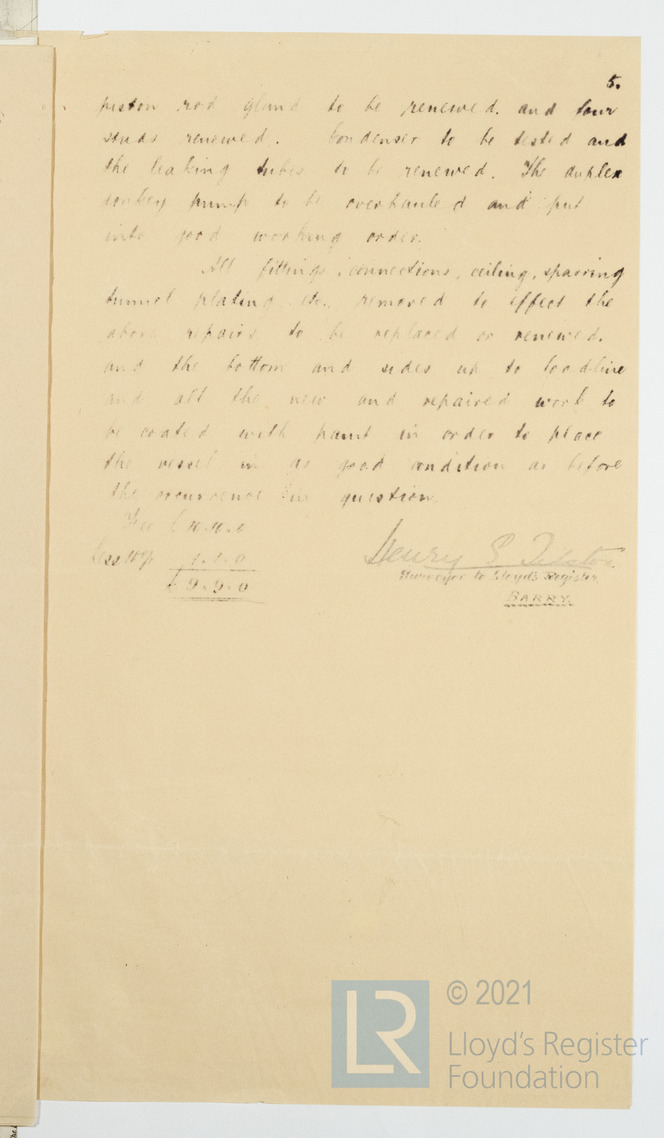 5.
piston rod gland to be renewed. and four
studs renewed. Condenser to be tested and
the leaking tubes to be renewed. The duplex
donkey pump to be overhauled and put
into good working order.
All fittings, connections, ceiling, sparring
tunnel plating, etc., removed to effect the
above repairs to be replaced or renewed.
and the bottom and sides up to loadline
and all the new and repaired work to
be coated with paint in order to place
the vessel in as good condition as before
the occurrence in question.
Fee £10.10.0
Less 10% 1.1.0
£9.9.0
Henry S.
Surveyor to Lloyd's Register
BARRY.
LR
© 2021
Lloyd's Register
Foundation